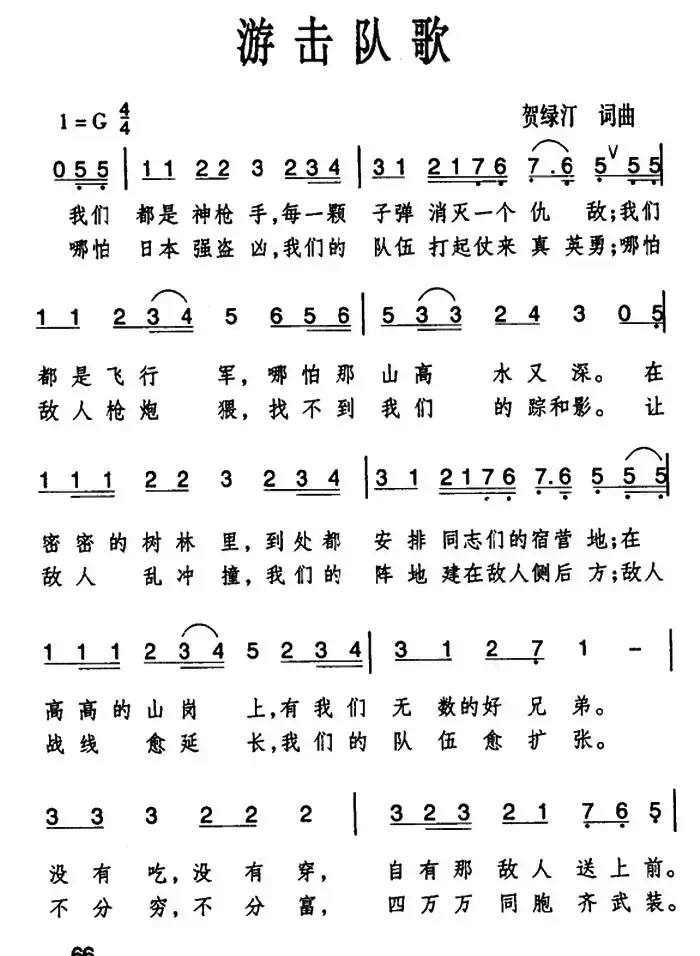 游击队歌
1=G 4/4
贺绿汀 词曲
0 5 5 | 1 1 2 2 3 2 3 4 | 3 1 2 1 7 6 7 . 6 5 ∨ 5 5 |
我们 都是 神枪 手,每一颗 子弹 消灭一个 仇 敌;我们
哪怕 日本 强盗 凶,我们的 队伍 打起仗来 真 英勇;哪怕
1 1 2 3 4 5 6 5 6 | 5 3 3 2 4 3 0 5 |
都是飞行 军,哪怕那 山高 水又深。在
敌人枪炮 猥,找不到 我们 的踪和影。让
1 1 1 2 2 3 2 3 4 | 3 1 2 1 7 6 7 . 6 5 5 5 |
密密的树林 里,到处都 安排 同志们的宿营 地;在
敌人 乱冲 撞,我们的 阵地 建在敌人侧后 方;敌人
1 1 1 2 3 4 5 2 3 4 | 3 1 2 7 1 - |
高高的山岗 上,有我们 无 数的好 兄 弟。
战线 愈延 长,我们的 队 伍愈 扩 张。
3 3 3 2 2 2 | 3 2 3 2 1 7 6 5 |
没有 吃,没有 穿, 自有那 敌人 送上前。
不分 穷,不分 富, 四万万 同胞 齐武装。
66